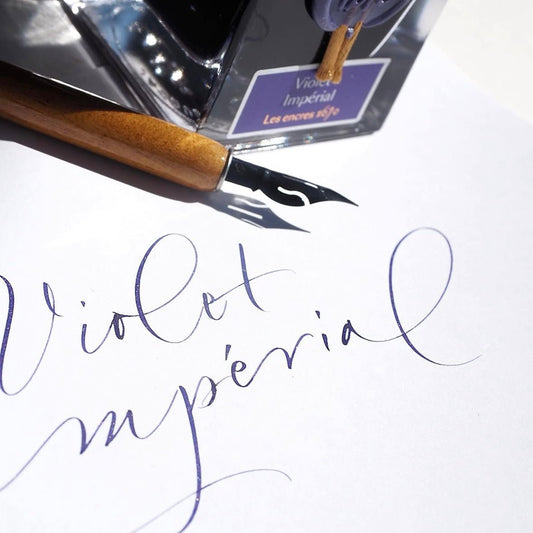 Violet
Impérial
Les encres 1670
Violet
Impérial